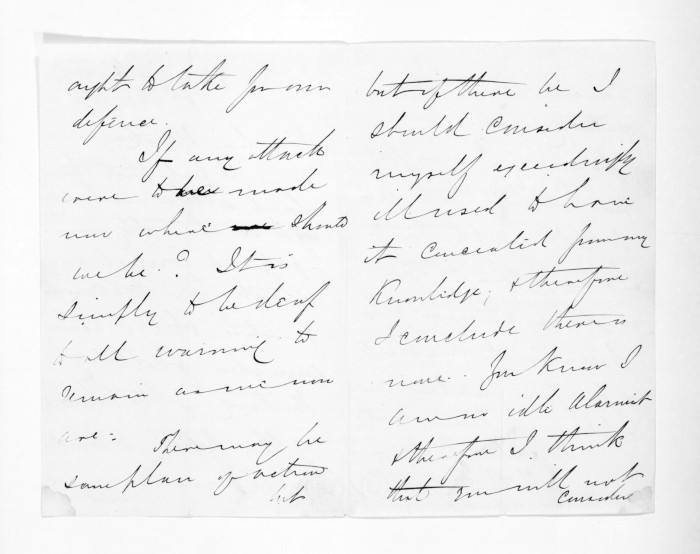 ought to take for our
defence.
If any attack
were to be made
now where should
we be? It is
simply to be deaf
to all warning to
remain as we now
are. There may be
some plan of action
but
but if there be I
should consider
myself exceedingly
ill used to have
it concealed from my
Knowledge, & therefore
I conclude there is
none. You Know I
am no idle alarmist
& therefore I think
that you will not
consider